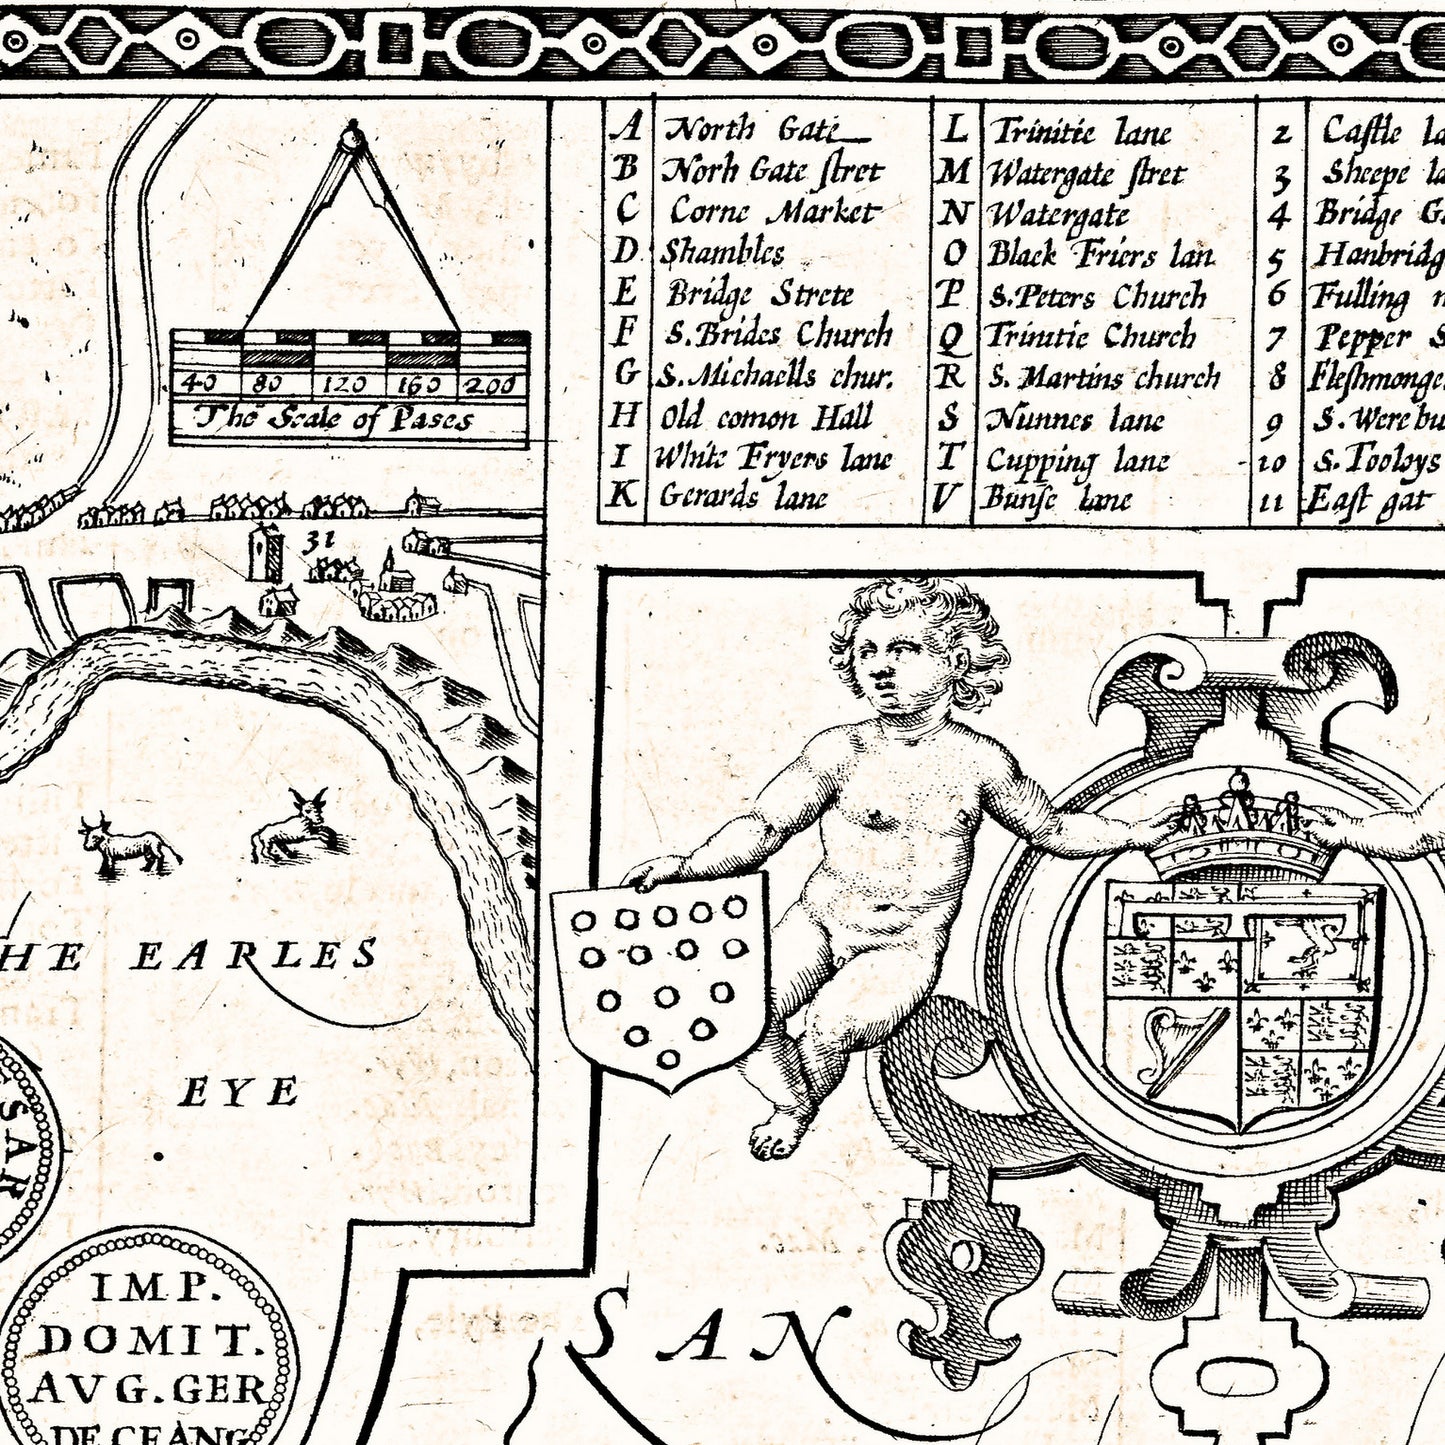 A North Gate
B Norh Gate stret
C Corne Market
D Shambles
E Bridge Strete
F S. Brides Church
G S. Michaells chur.
H Old comon Hall
I White Fryers lane
K Gerards lane
L Trinitie lane
M Watergate stret
N Watergate
O Black Friers lan
P S. Peters Church
Q Trinitie Church
R S. Martins church
S Nunnes lane
T Cupping lane
V Bunse lane
2 Castle la
3 Sheepe la
4 Bridge Ga
5 Hanbridg
6 Fulling
7 Pepper S
8 Fleshmonge
9 S. Werebu
10 S. Tooloys
11 East gat
40 80 120 160 200
The Scale of Pases
31
HE EARLES
EYE
SAR
IMP.
DOMIT.
AVG. GER
DE CEANG
SAN